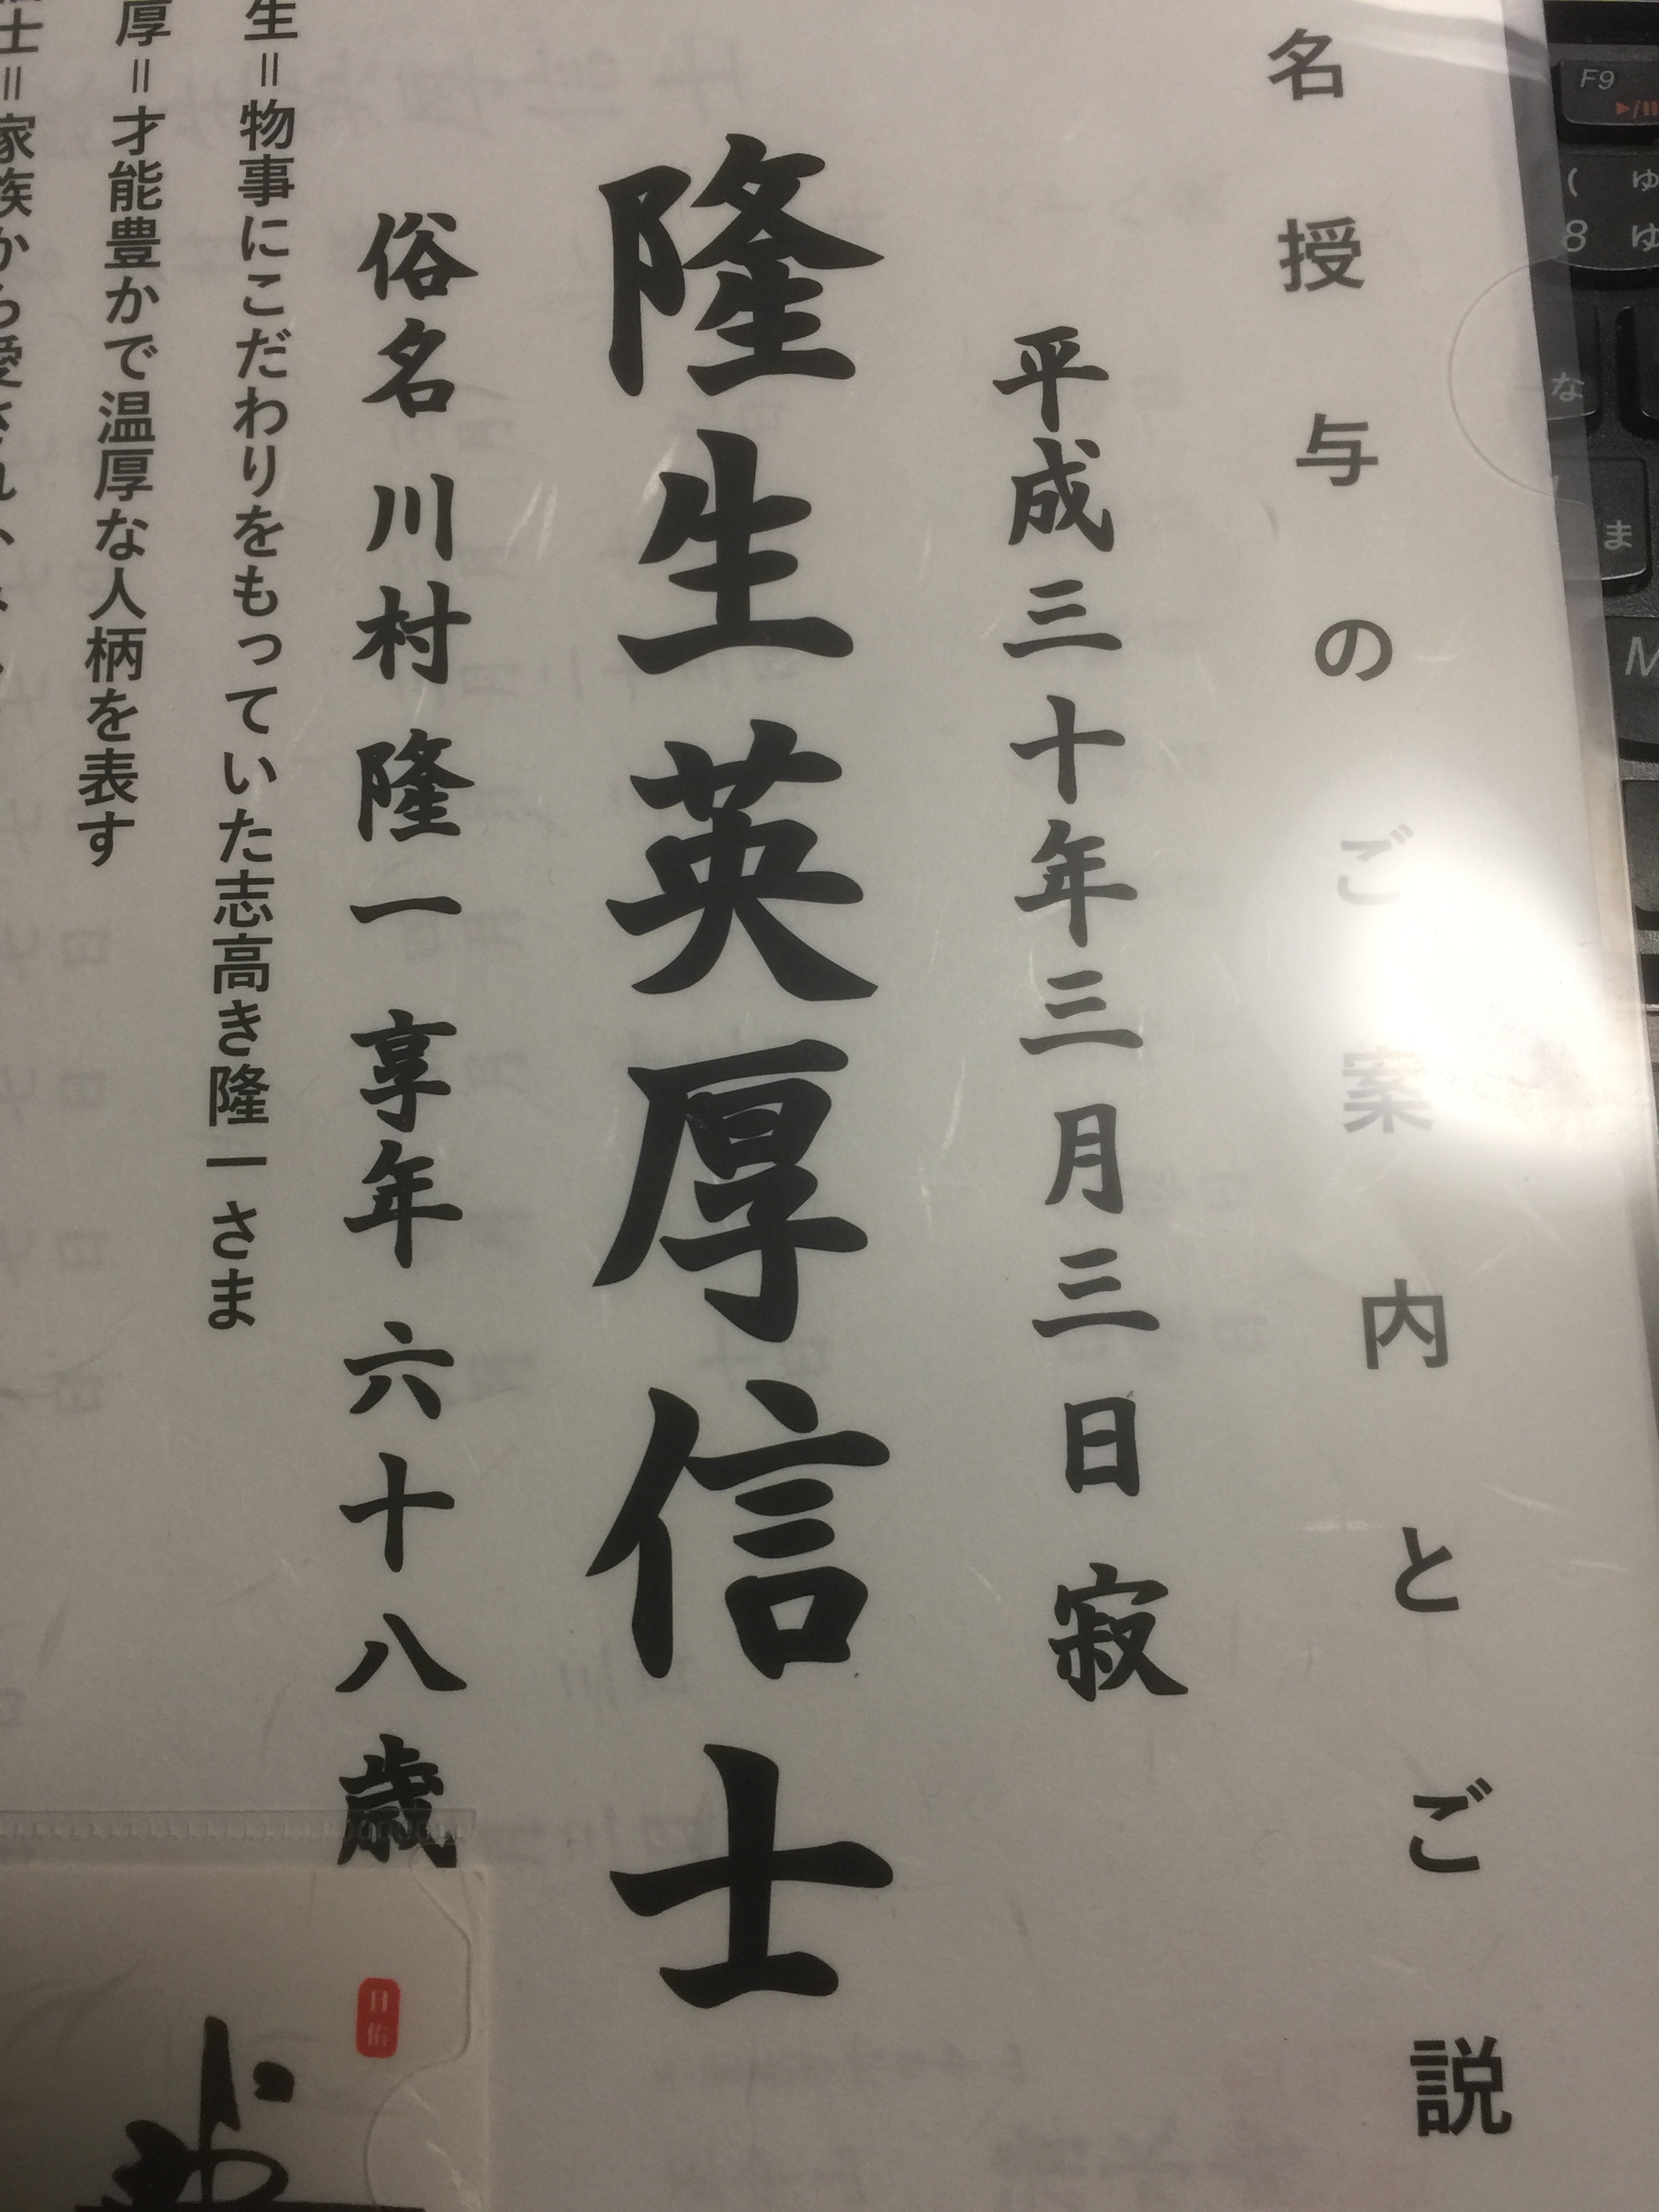 名授与のご案内とご説
平成三十年三月三日 寂
隆生英厚信士
俗名 川村 隆一 享年 六十八歳
生=物事にこだわりをもっていた志高き隆一さま
厚=才能豊かで温厚な人柄を表す
士=家族から愛され、
F9
( ゆ
8 ゆ
な
ま
M